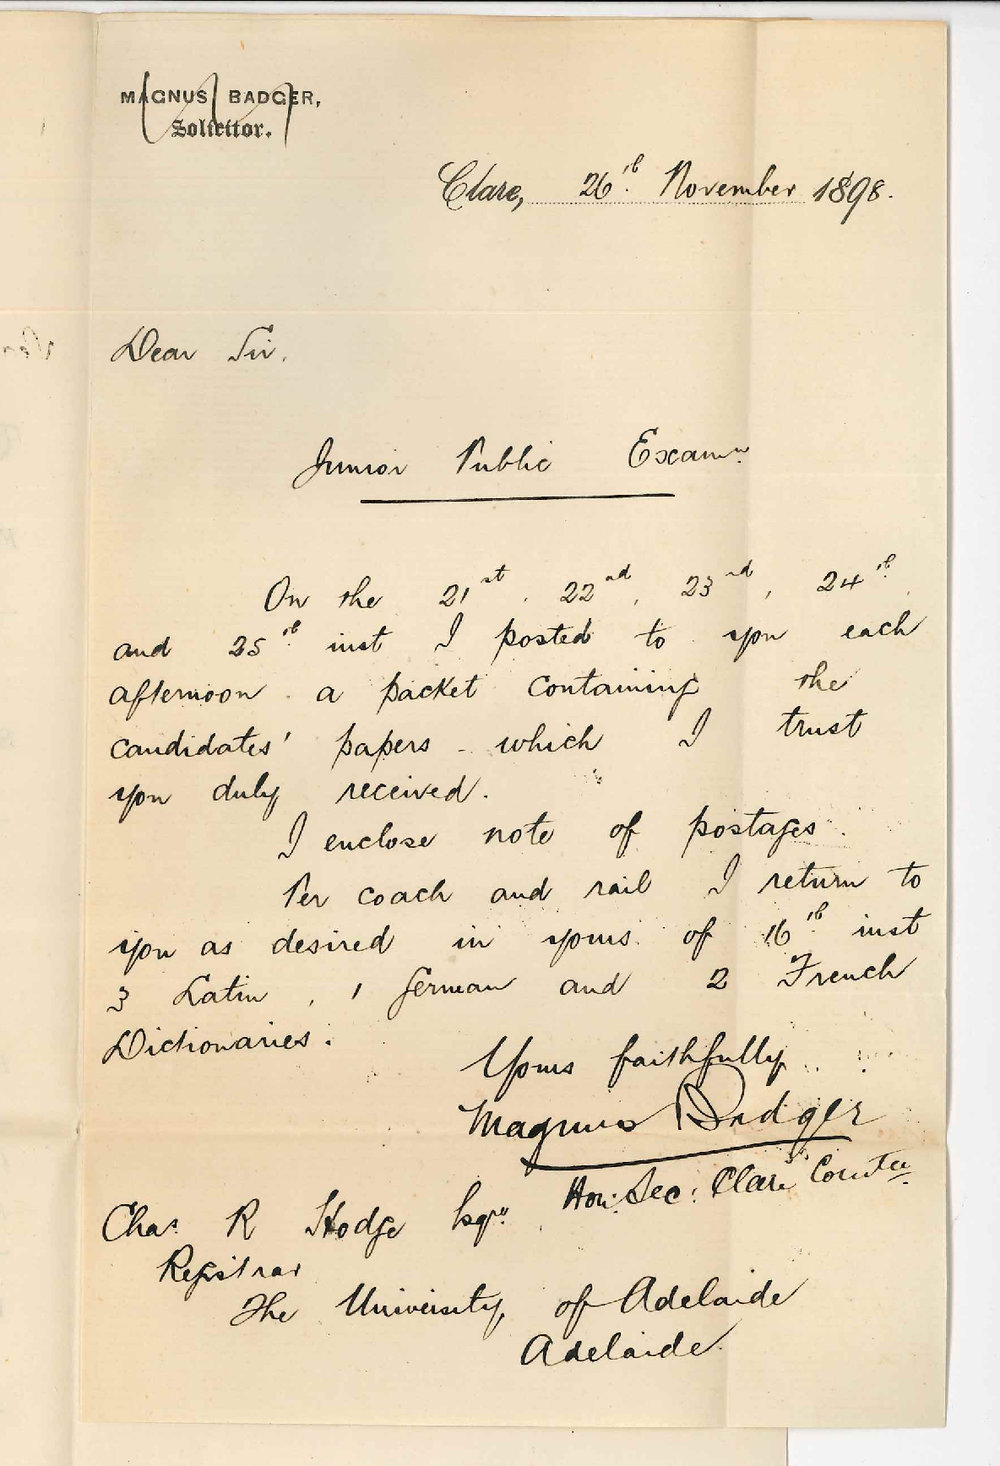 MAGNUS BADGER,
Solicitor.
Clare, 26th November 1898.
Dear Sir.
Junior Public Examn
On the 21st, 22nd, 23rd, 24th,
and 25th inst I posted to you each
afternoon a packet containing the
candidates' papers - which I trust
you duly received.
I enclose note of postages.
Per coach and rail I return to
you as desired in yours of 16th inst
3 Latin, 1 German and 2 French
Dictionaries.
Yours faithfully
Magnus Badger
Hon: Sec: Clare Comtee
Chas R Hodge Esqre
Registrar
The University of Adelaide
Adelaide.